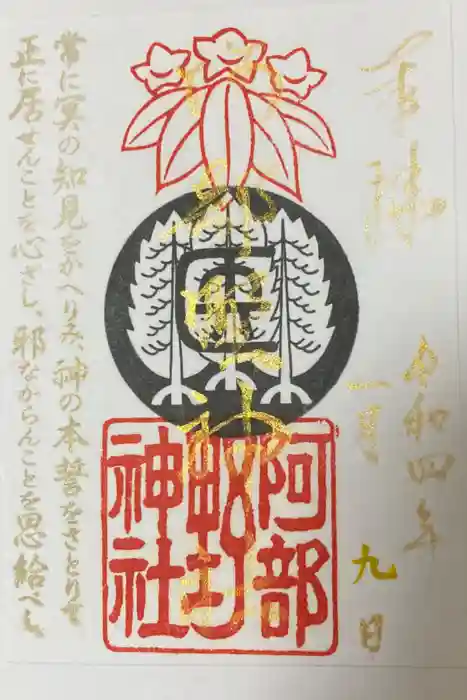 奉拝
令和四年
一月
九日
阿部野神社
常に冥の知見をかへりみ、神の本誓をさとりて
正に居せんことを心ざし、邪なからんことを思給べし